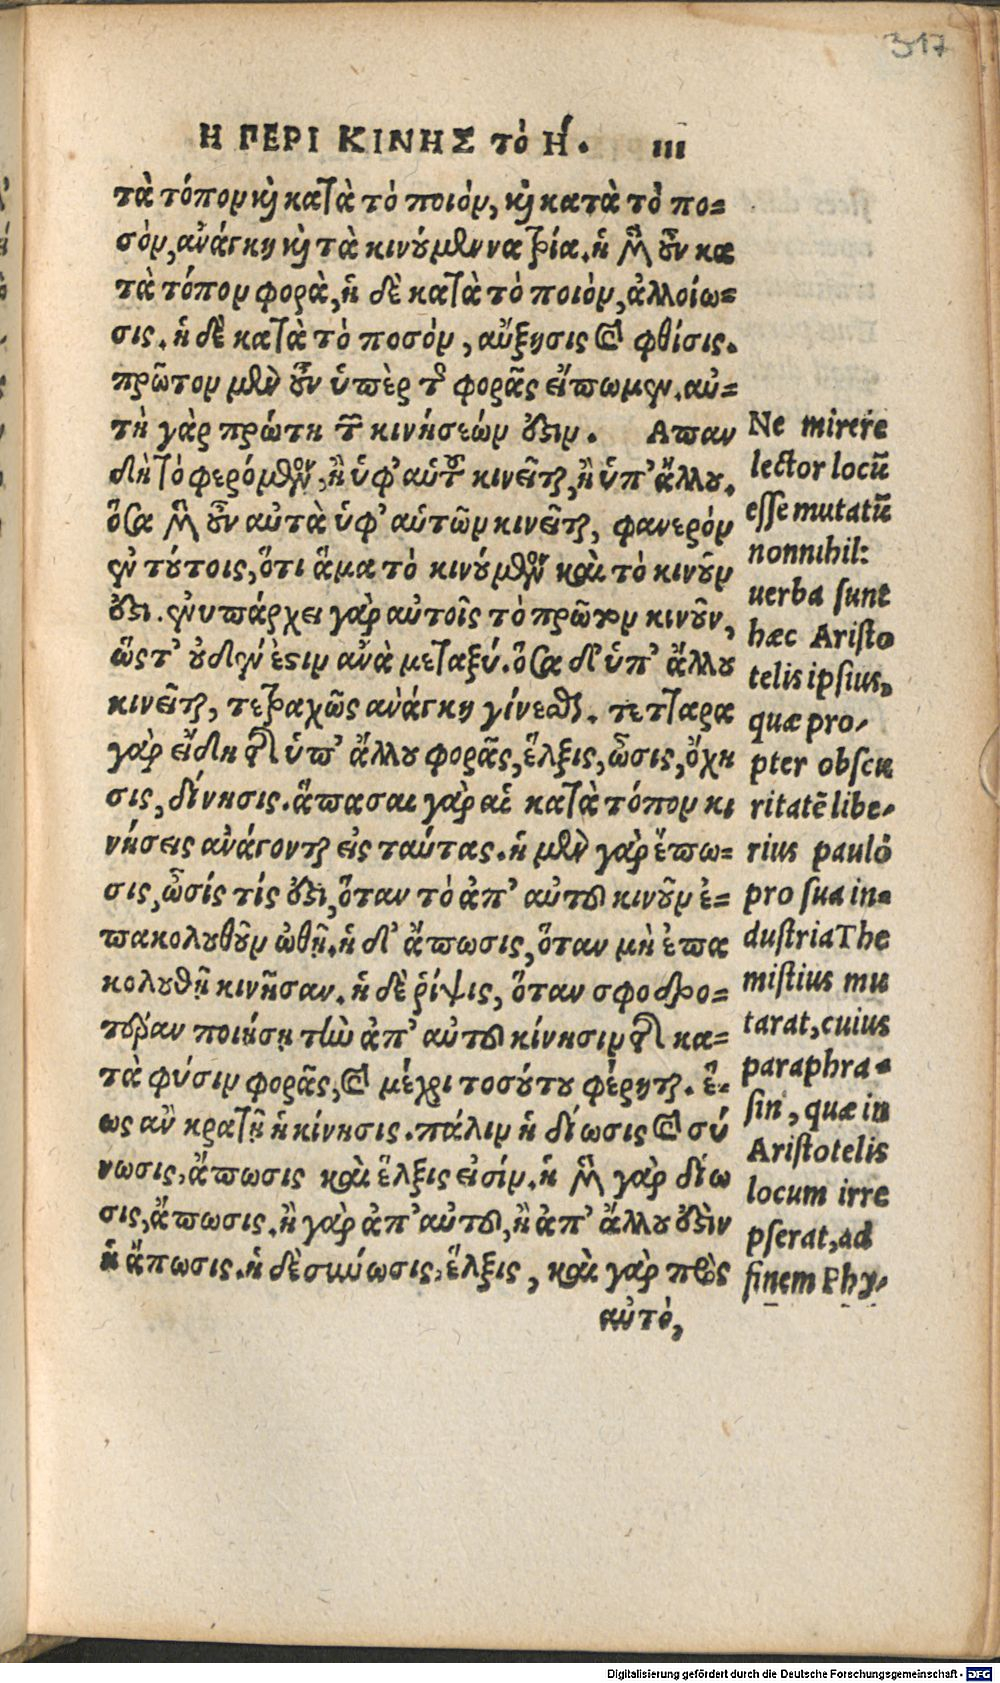 317
Η ΠΕΡΙ ΚΙΝΗΣ τὸ Η΄. III
τὰ τόπον καὶ κατὰ τὸ ποιόν, καὶ κατὰ τὸ πο=
σόν, ἀνάγκη καὶ τὰ κινούμενα τρία. ἡ μὲν οὖν κα
τὰ τόπον φορὰ, ἡ δὲ κατὰ τὸ ποιόν, ἀλλοίω=
σις. ἡ δὲ κατὰ τὸ ποσόν, αὔξησις καὶ φθίσις.
πρῶτον μὲν οὖν ὑπὲρ τῆς φορᾶς εἴπωμεν. αὐ=
τη γὰρ πρώτη τῶν κινήσεών ἐστιν. Απαν
δὴ τὸ φερόμενον, ἢ ὑφ' αὑτοῦ κινεῖται, ἢ ὑπ' ἄλλου.
ὅσα μὲν οὖν αὐτὰ ὑφ' αὑτῶν κινεῖται, φανερόν
ἐν τούτοις, ὅτι ἅμα τὸ κινούμενον καὶ τὸ κινοῦν
ἐστι. ἐνυπάρχει γὰρ αὐτοῖς τὸ πρῶτον κινοῦν,
ὥστ' οὐδέν ἐστιν ἀνὰ μεταξύ. ὅσα δ' ὑπ' ἄλλου
κινεῖται, τετραχῶς ἀνάγκη γίνεσθαι. τετταρα
γὰρ εἴδη τῆς ὑπ' ἄλλου φορᾶς, ἕλξις, ὦσις, ὄχη
σις, δίνησις. ἅπασαι γὰρ αἱ κατὰ τόπον κι
νήσεις ἀνάγονται εἰς ταύτας. ἡ μὲν γὰρ ἔπω=
σις, ὦσίς τίς ἐστι, ὅταν τὸ ἀπ' αὐτοῦ κινοῦν ἐ=
πακολουθοῦν ὠθῇ. ἡ δ' ἄπωσις, ὅταν μὴ ἐπα
κολουθῇ κινῆσαν. ἡ δὲ ῥίψις, ὅταν σφοδρο=
τέραν ποιήσῃ τὴν ἀπ' αὐτοῦ κίνησιν τῆς κα=
τὰ φύσιν φορᾶς, καὶ μέχρι τοσούτου φέρηται. ἕ=
ως ἂν κρατῇ ἡ κίνησις. πάλιν ἡ δίωσις καὶ σύ
νωσις, ἄπωσις καὶ ἕλξις εἰσίν. ἡ μὲν γὰρ δίω
σις, ἄπωσις. ἢ γὰρ ἀπ' αὐτοῦ, ἢ ἀπ' ἄλλου ἐστὶν
ἡ ἄπωσις. ἡ δὲ σύνωσις, ἕλξις, καὶ γὰρ πρὸς
αὐτό,
Ne mirere
lector locū
esse mutatū
nonnihil:
uerba sunt
hæc Aristo
telis ipsius,
quæ pro-
pter obscu
ritatē libe-
rius paulò
pro sua in-
dustria The
mistius mu
tarat, cuius
paraphra-
sin, quæ in
Aristotelis
locum irre
pserat, ad
finem Phy-
Digitalisierung gefördert durch die Deutsche Forschungsgemeinschaft - DFG